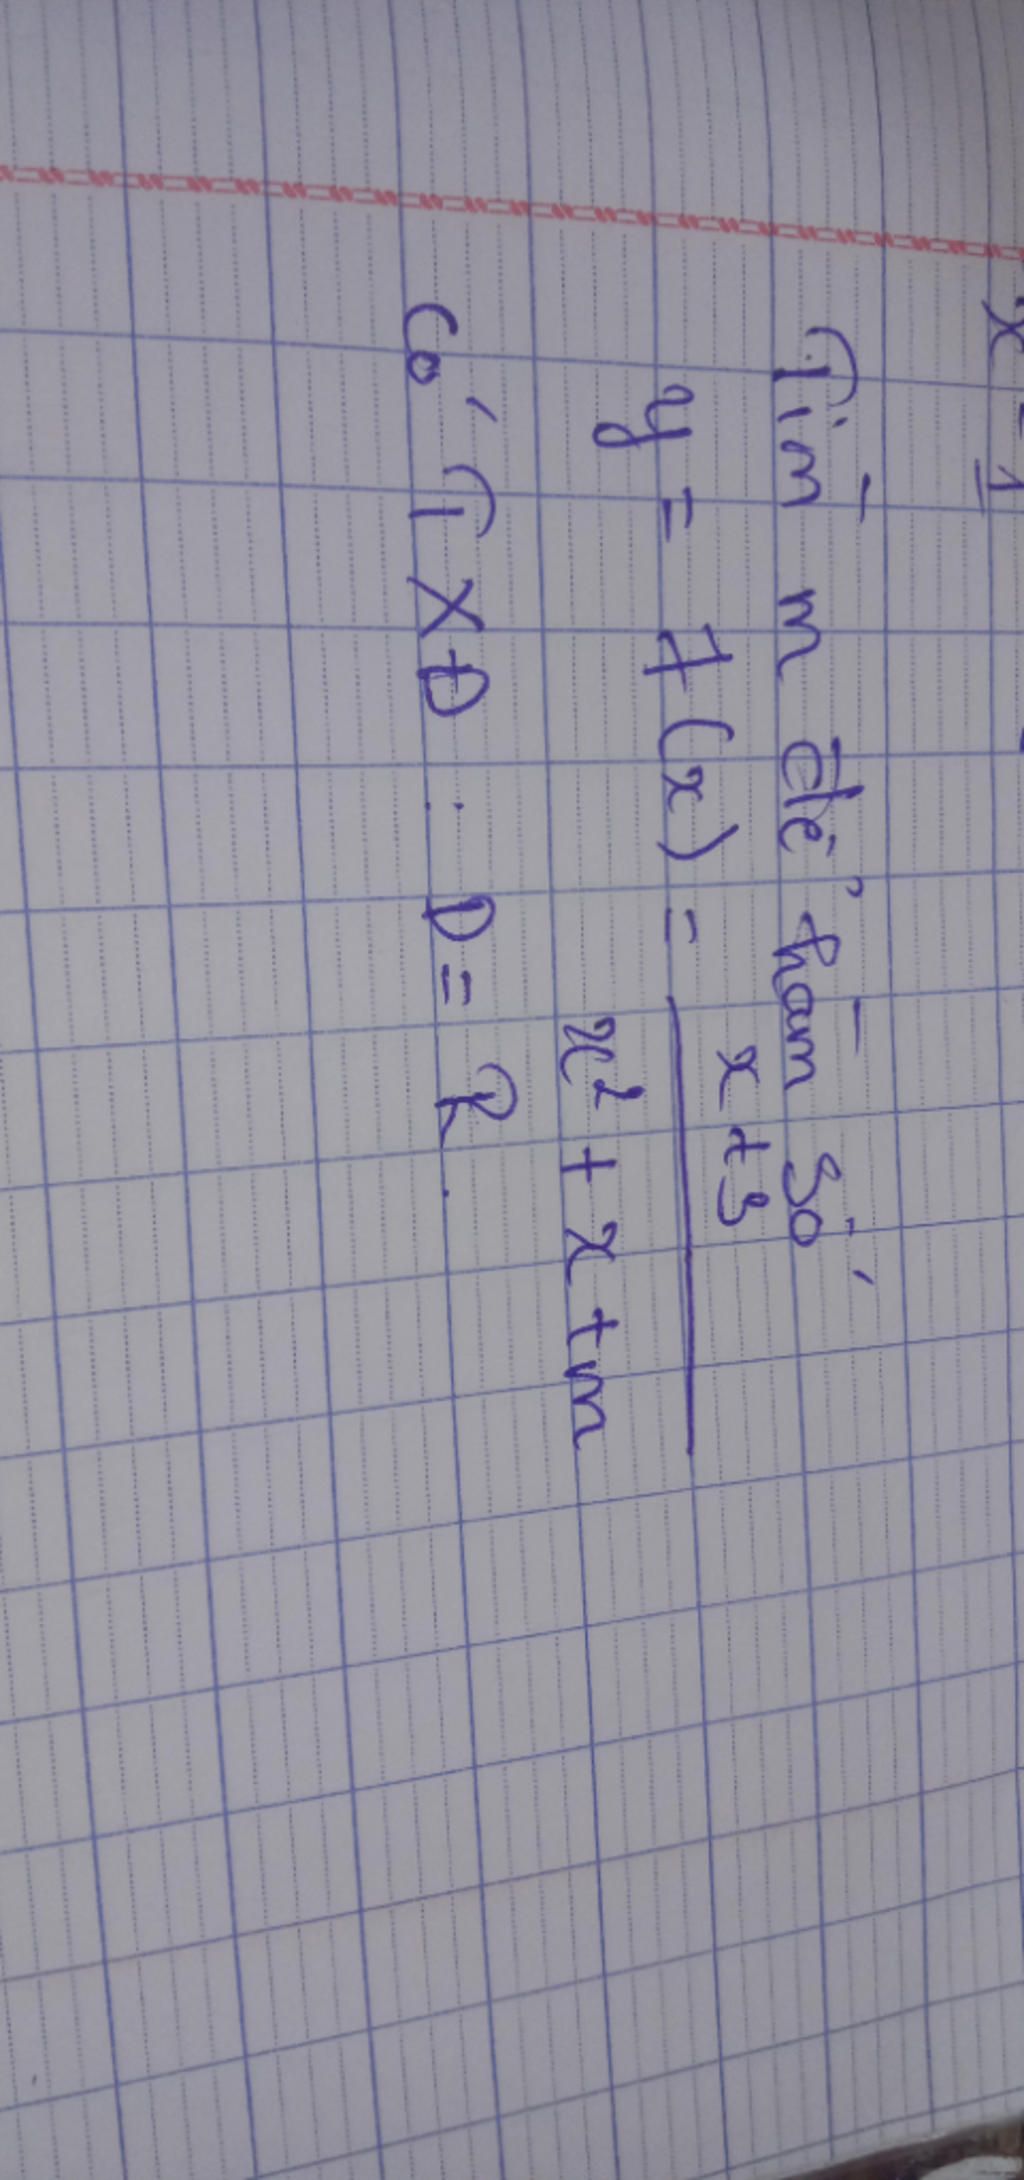 x - 1
Tìm m để hàm số
y = f(x) = x + 3
x² + x + m
có TXĐ : D = R.